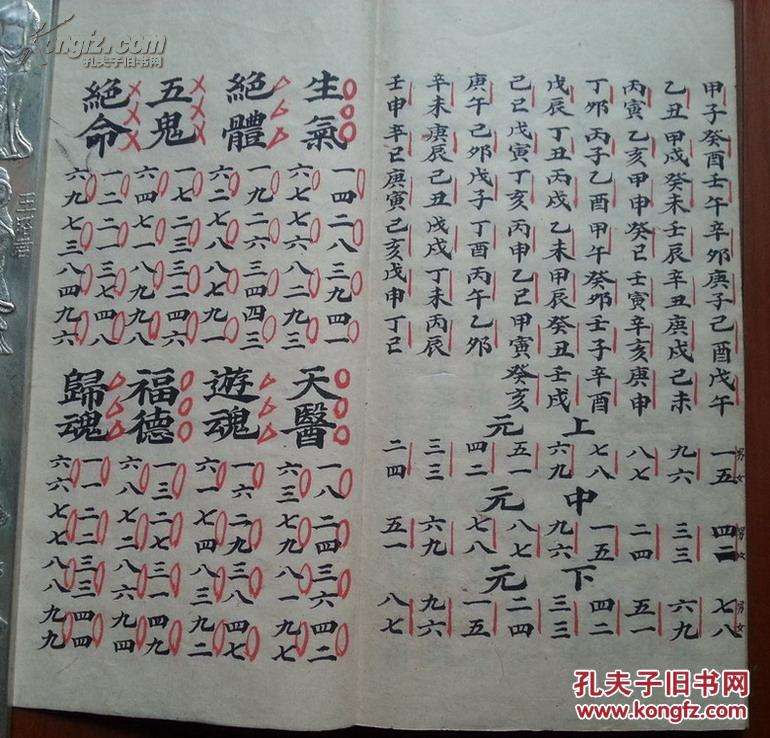 甲子癸酉壬午辛卯庚子己酉戊午
乙丑甲戌癸未壬辰辛丑庚戌己未
丙寅乙亥甲申癸巳壬寅辛亥庚申
丁卯丙子乙酉甲午癸卯壬子辛酉
戊辰丁丑丙戌乙未甲辰癸丑壬戌
己巳戊寅丁亥丙申乙巳甲寅癸亥
庚午己卯戊子丁酉丙午乙卯
辛未庚辰己丑戊戌丁未丙辰
壬申辛巳庚寅己亥戊申丁巳
上元
男女
一五 九六 八七 七八 六九 五一 四二 三三 二四
中元
男女
四二 三三 二四 一五 九六 八七 七八 六九 五一
下元
男女
七八 六九 五一 四二 三三 二四 一五 九六 八七
生氣
一四 二八 三九 四一
六七 七六 八二 九三
絕體
一九 二六 三四 四三
六二 七八 八七 九一
五鬼
一七 二三 三二 四六
六四 七一 八九 九八
絕命
一二 二一 三七 四八
六九 七三 八四 九六
天醫
一八 二四 三六 四二
六三 七九 八一 九七
遊魂
一六 二九 三八 四七
六一 七四 八三 九二
福德
一三 二七 三一 四九
六八 七二 八六 九四
歸魂
一一 二二 三三 四四
六六 七七 八八 九九
Kongfz.com
孔夫子旧书网
孔夫子旧书网
www.kongfz.com